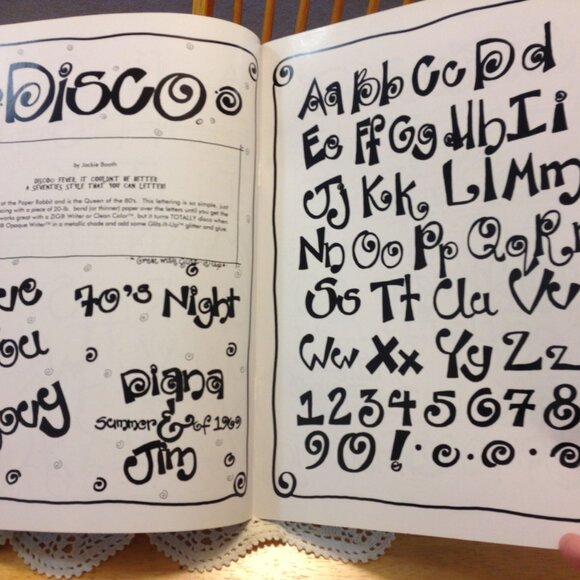 DISCO
by Jackie Booth
DISCO FEVER, IT COULDN'T BE BETTER
A SEVENTIES STYLE THAT YOU CAN LETTER!
at the Paper Rabbit and is the Queen of the 80's. This lettering is so simple, just
acing with a piece of 20-lb. bond (or thinner) paper over the letters until you get the
works great with a ZIG® Writer or Clean Color™, but it turns TOTALLY disco when
® Opaque Writer™ in a metallic shade and add some Glitz-It-Up™ glitter and glue.
70's Night
ou
Diana
Summer & of 1969
Jim
Aa Bb Cc D d
Ee Ff Gg Hh I i
Jj Kk Ll Mm
Nn Oo Pp Qq Rr
Ss Tt Uu Vv
Ww Xx Yy Zz
1 2 3 4 5 6 7 8
9 0 ! . . .